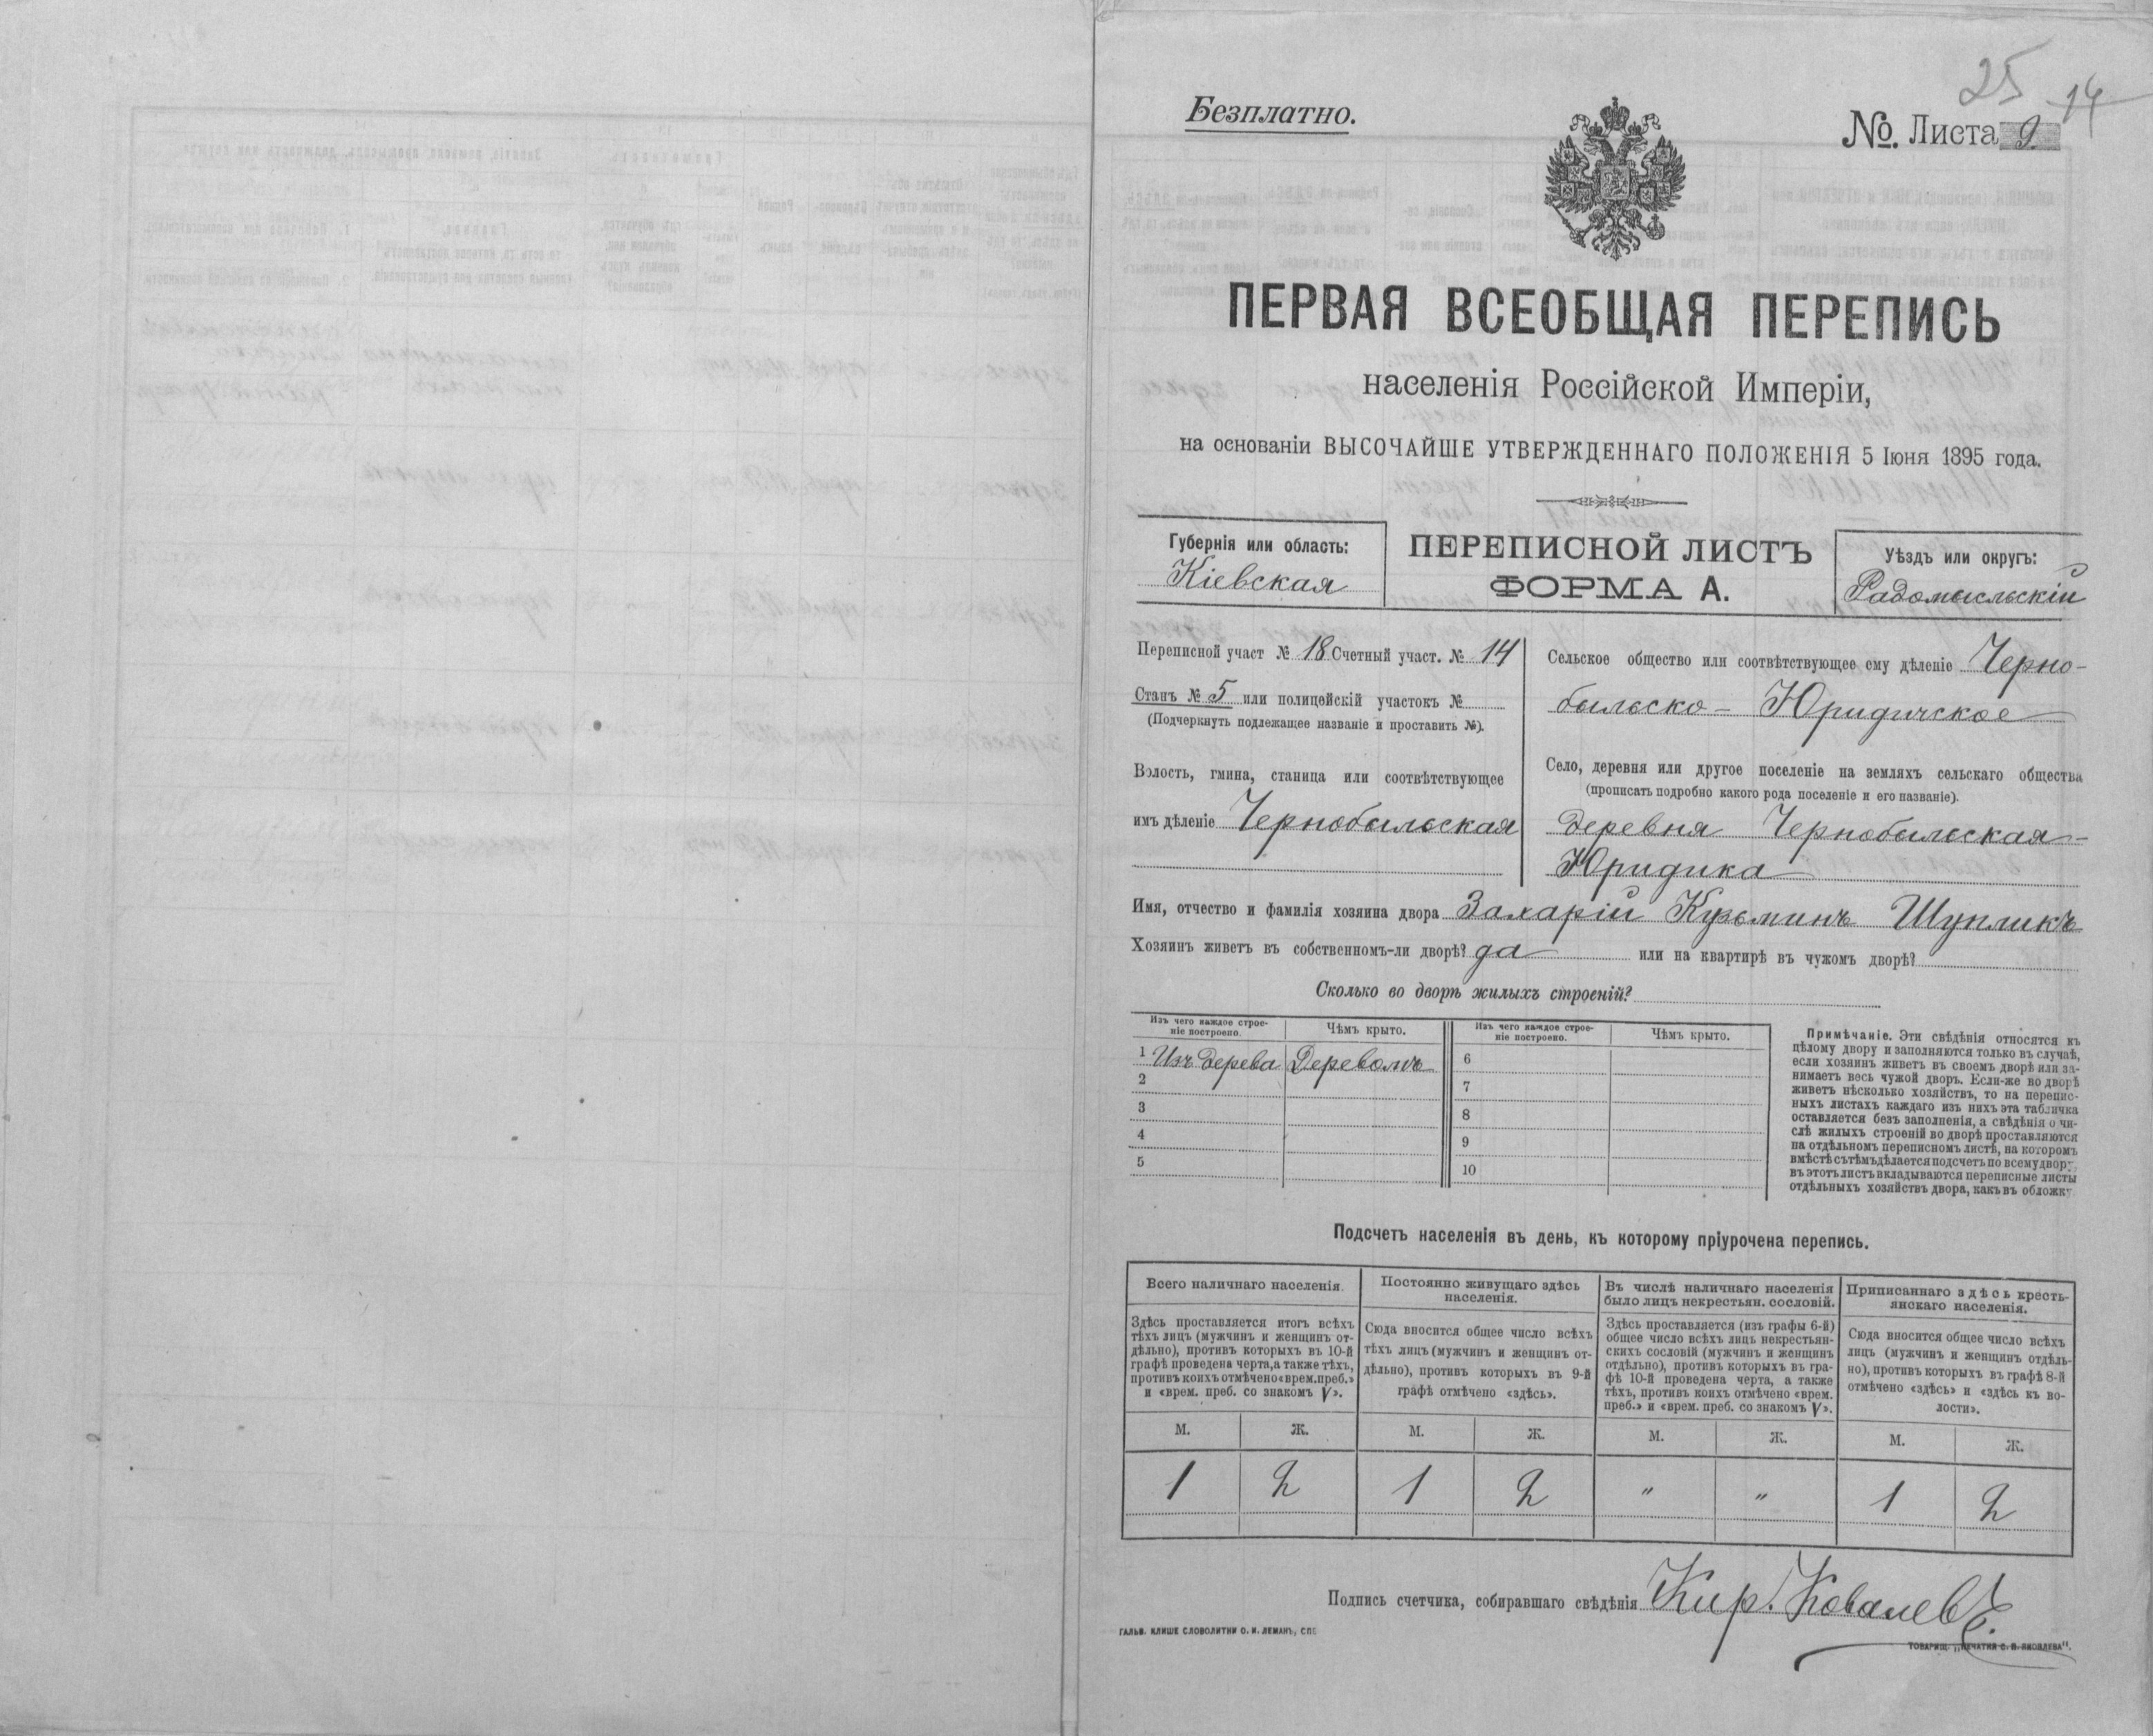 25 14
Безплатно.
№. Листа 9.
ПЕРВАЯ ВСЕОБЩАЯ ПЕРЕПИСЬ
населенія Россійской Имперіи,
на основаніи ВЫСОЧАЙШЕ УТВЕРЖДЕННАГО ПОЛОЖЕНІЯ 5 Іюня 1895 года.
Губернія или область:
Кіевская
ПЕРЕПИСНОЙ ЛИСТЪ
ФОРМА А.
Уѣздъ или округъ:
Радомысльскій
Переписной участ № 18 Счетный участ. № 14
Станъ № 5 или полицейскій участокъ №
(Подчеркнуть подлежащее названіе и проставить №).
Волость, гмина, станица или соотвѣтствующее
имъ дѣленіе Чернобыльская
Сельское общество или соотвѣтствующее ему дѣленіе Черно-
быльско-Юридичское
Село, деревня или другое поселеніе на земляхъ сельскаго общества
(прописать подробно какого рода поселеніе и его названіе).
деревня Чернобыльская-
Юридика
Имя, отчество и фамилія хозяина двора Захарій Кузьминъ Шупликъ
Хозяинъ живетъ въ собственномъ-ли дворѣ? да или на квартирѣ въ чужомъ дворѣ?
Сколько во дворѣ жилыхъ строеній?
Изъ чего каждое строе-
ніе построено.
Чѣмъ крыто.
Изъ чего каждое строе-
ніе построено.
Чѣмъ крыто.
1 Изъ дерева Деревомъ 6
2 7
3 8
4 9
5 10
Примѣчаніе. Эти свѣдѣнія относятся къ
цѣлому двору и заполняются только въ случаѣ,
если хозяинъ живетъ въ своемъ дворѣ или за-
нимаетъ весь чужой дворъ. Если-же во дворѣ
живетъ нѣсколько хозяйствъ, то на перепис-
ныхъ листахъ каждаго изъ нихъ эта табличка
оставляется безъ заполненія, а свѣдѣнія о чи-
слѣ жилыхъ строеній во дворѣ проставляются
на отдѣльномъ переписномъ листѣ, на которомъ
вмѣстѣ съ тѣмъ дѣлается подсчетъ по всему двору,
въ этотъ листъ вкладываются переписные листы
отдѣльныхъ хозяйствъ двора, какъ въ обложку
Подсчетъ населенія въ день, къ которому пріурочена перепись.
Всего наличнаго населенія.
Здѣсь проставляется итогъ всѣхъ
тѣхъ лицъ (мужчинъ и женщинъ от-
дѣльно), противъ которыхъ въ 10-й
графѣ проведена черта, а также тѣхъ,
противъ коихъ отмѣчено «врем. преб.»
и «врем. преб. со знакомъ V».
Постоянно живущаго здѣсь
населенія.
Сюда вносится общее число всѣхъ
тѣхъ лицъ (мужчинъ и женщинъ от-
дѣльно), противъ которыхъ въ 9-й
графѣ отмѣчено «здѣсь».
Въ числѣ наличнаго населенія
было лицъ некрестьян. сословій.
Здѣсь проставляется (изъ графы 6-й)
общее число всѣхъ лицъ некрестьян-
скихъ сословій (мужчинъ и женщинъ
отдѣльно), противъ которыхъ въ гра-
фѣ 10-й проведена черта, а также
тѣхъ, противъ коихъ отмѣчено «врем.
преб.» и «врем. преб. со знакомъ V».
Приписаннаго здѣсь кресть-
янскаго населенія.
Сюда вносится общее число всѣхъ
лицъ (мужчинъ и женщинъ отдѣль-
но), противъ которыхъ въ графѣ 8-й
отмѣчено «здѣсь» и «здѣсь къ во-
лости».
М. Ж. М. Ж. М. Ж. М. Ж.
1 2 1 2 " " 1 2
Подпись счетчика, собиравшаго свѣдѣнія Кир. Ковалевъ
ГАЛЬВ. КЛИШЕ СЛОВОЛИТНИ О. И. ЛЕМАНЪ, СПБ
ТОВАРИЩ. „ПЕЧАТНЯ С. П. ЯКОВЛЕВА".